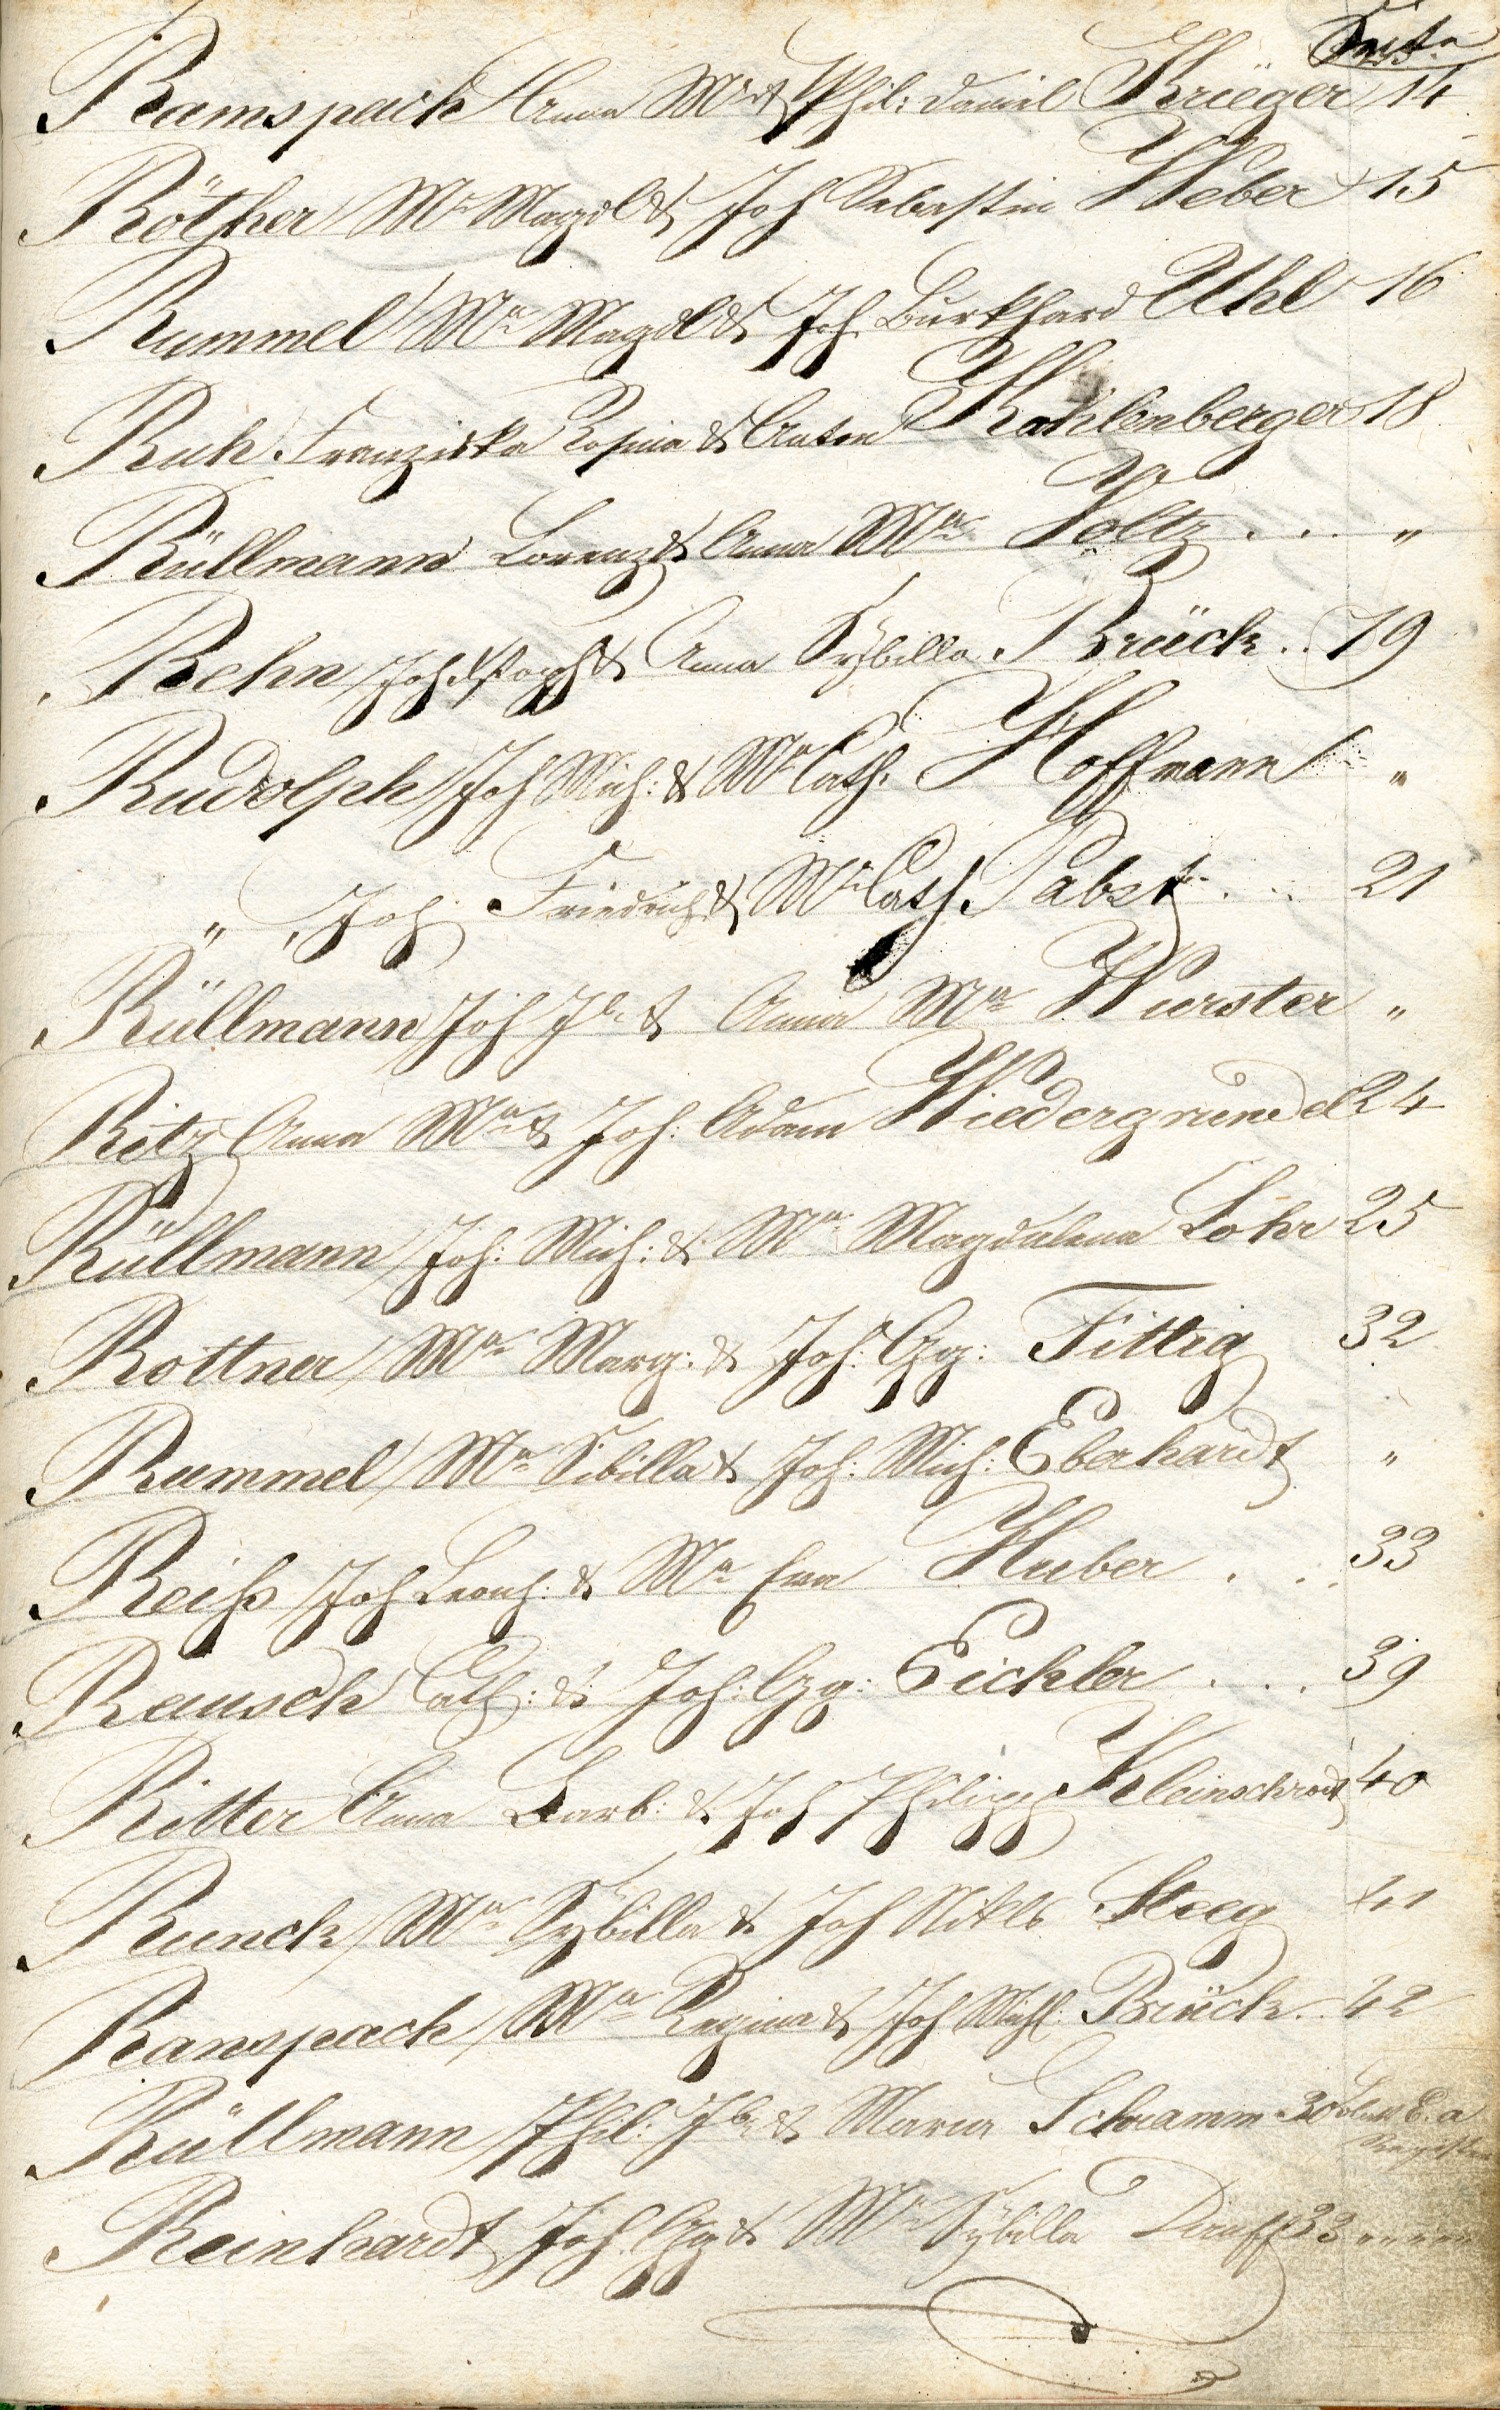 Seite
Ramspach Anna Mª & Phil: Daniel Krieger 14
Röther Mª Magdl & Joh Sebastin Weber 15
Rummel Mª Magdl & Joh. Burkhard Uhl 16
Ruh Franziska Rosina & Anton Kohlenberger 18
Rüllmann Lorenz & Anna Mª Voltz . . . "
Rehn Joh. Stoph & Anna Sybilla Brück . . 19
Rudolph Joh Mich: & Mª Cath. Hoffmann "
" Joh. Friedrich & Mª Cath. Pabst . . 21
Rüllmann Joh Jb. & Anna Mª Wurster "
Ritz Anna Mª & Joh. Adam Wiedergrundel 24
Rüllmann Joh: Mich: & Mª Magdalena Lohr 25
Rottner Mª Marg: & Joh: Gg: Fittig 32
Rummel Mª Sibilla & Joh: Mich: Eberhardt "
Reiß Joh Leonh: & Mª Eva Huber . . . 33
Rausch Cath: & Joh: Gg: Eichler . . . 39
Ritter Anna Barb: & Joh Philipp Kleinschrodt 40
Runck Mª Sybilla & Joh Nikls Steeg 41
Ramspach Mª Regina & Joh Michl: Brück . . 42
Rüllmann Phil: Jb & Maria Schramm 30
Reinhardt Joh. Gg & Mª Sybilla Drauff 33 " " " "